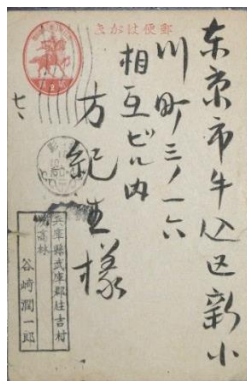 郵便はがき
東京市牛込区新小
川町三ノ一六
相互ビル内
方紀生様
兵庫縣武庫郡住吉村
谷崎潤一郎